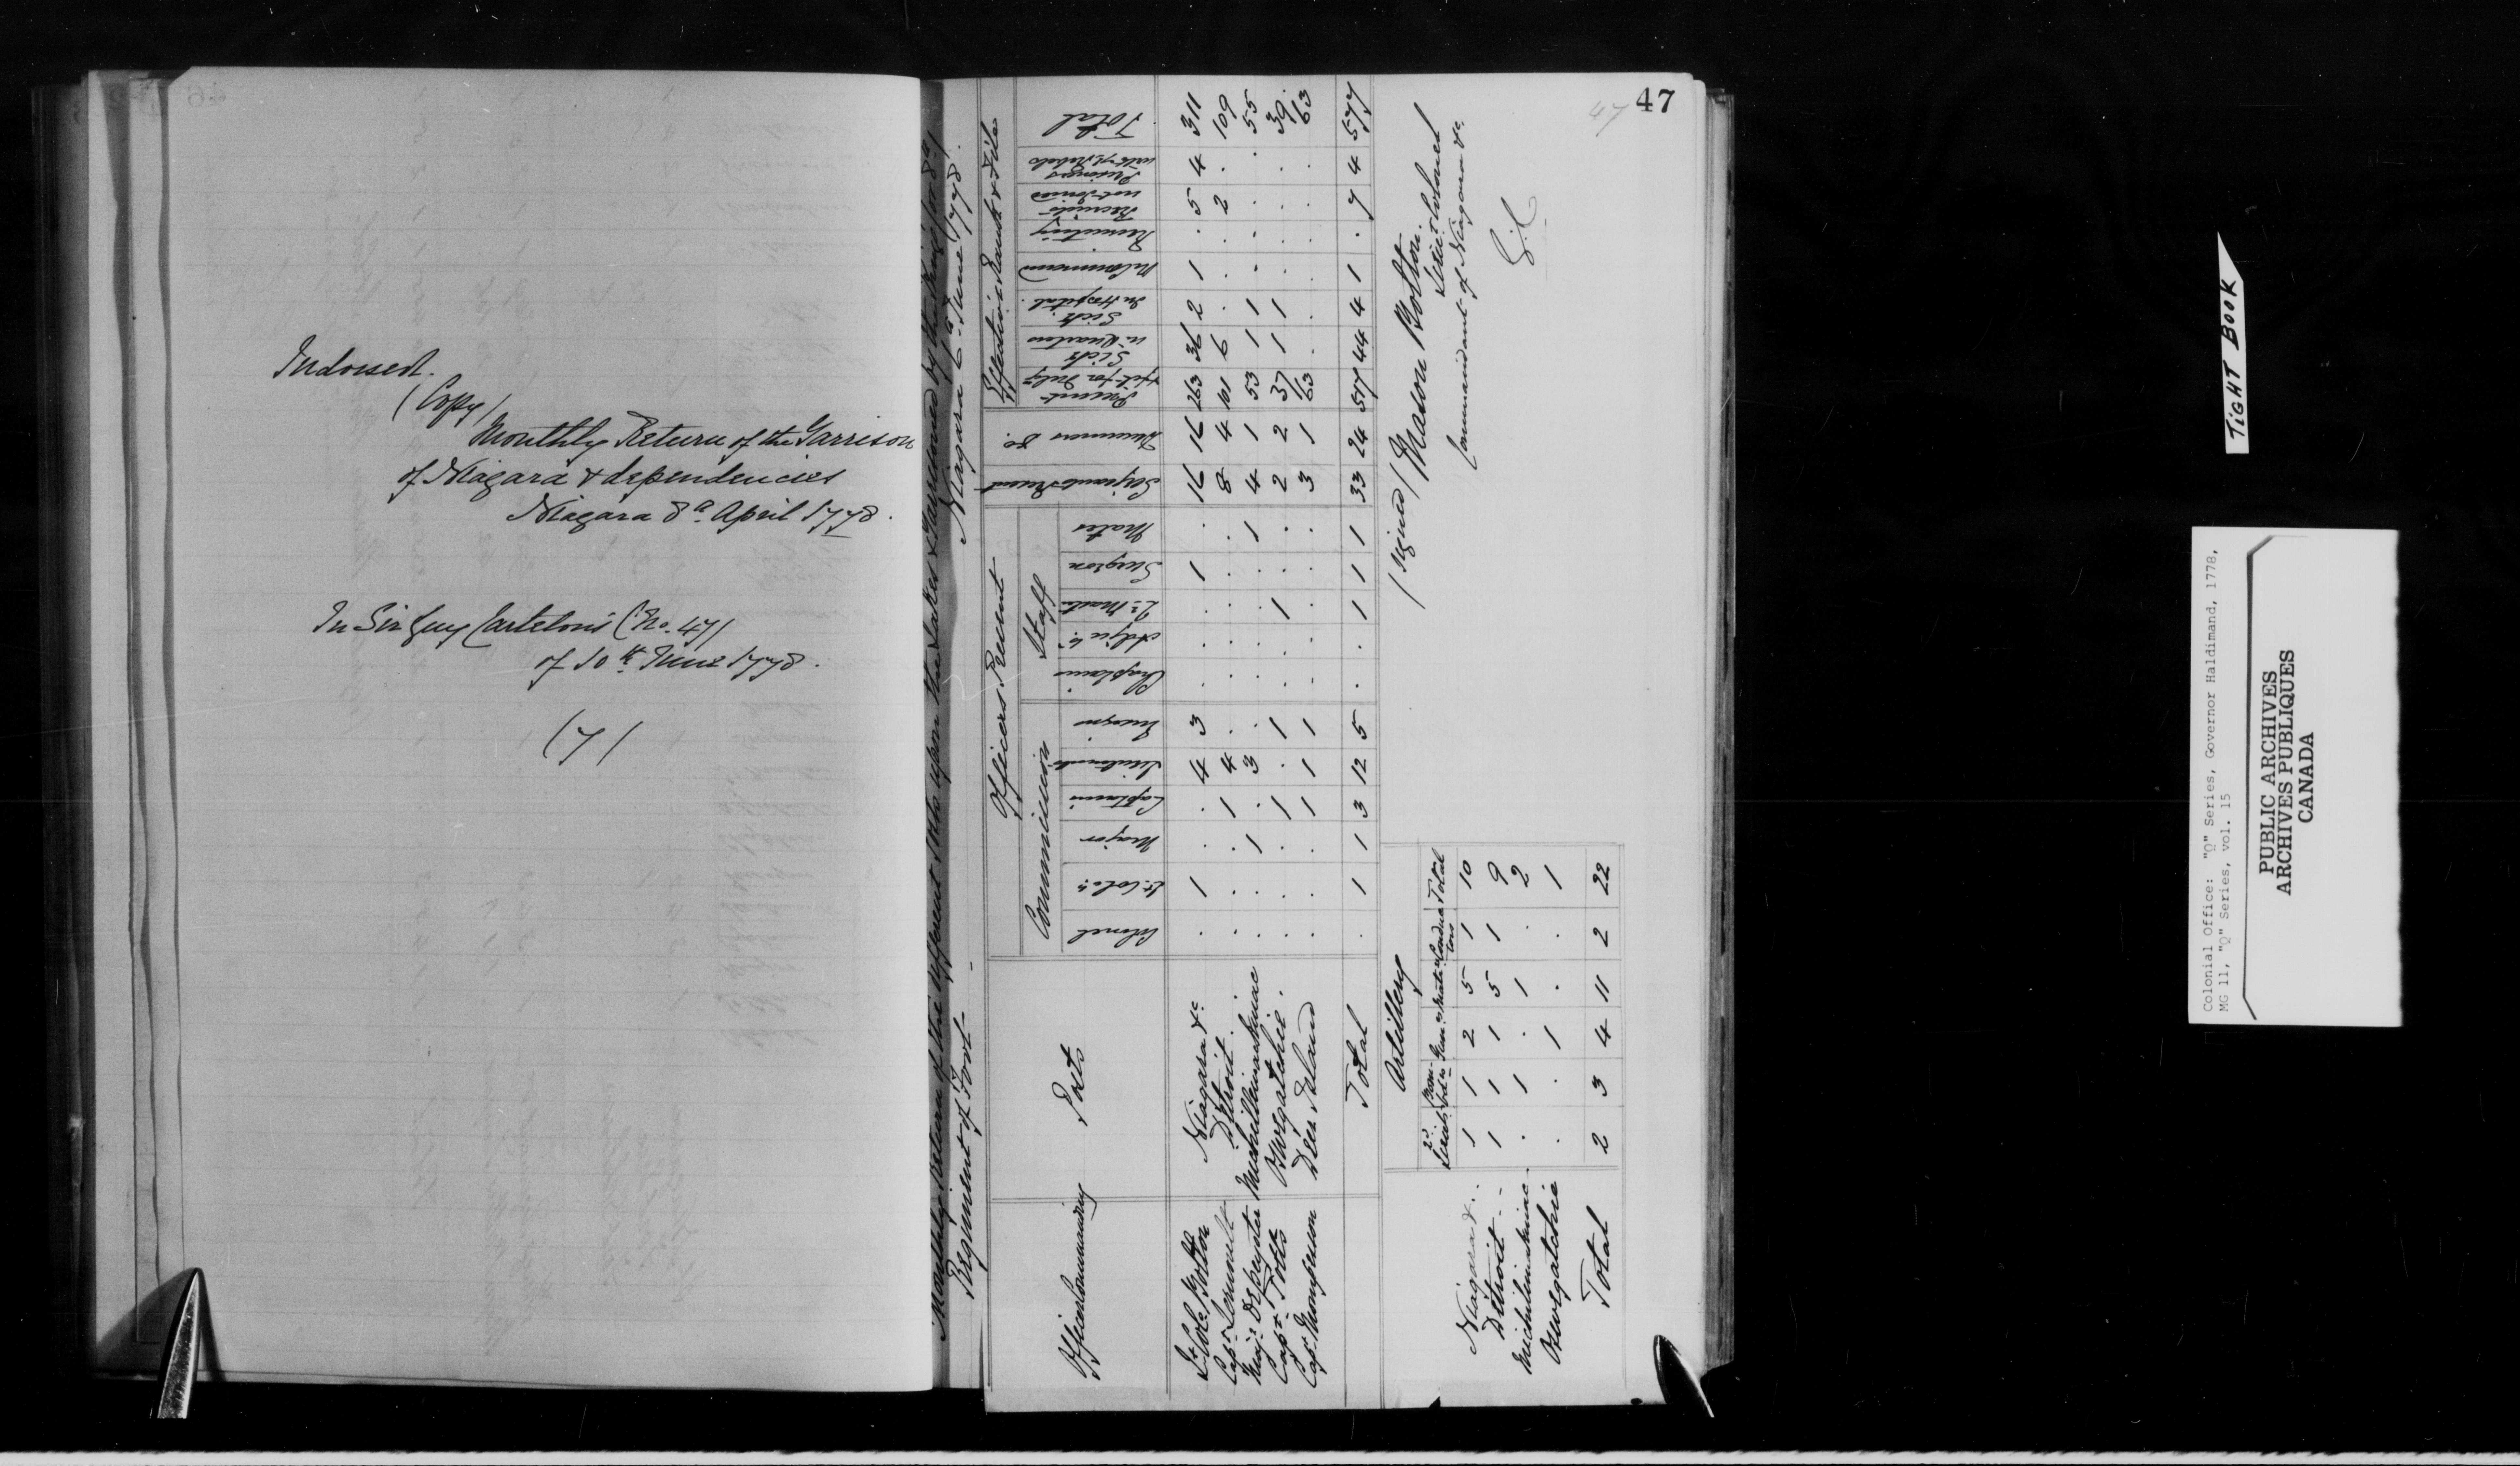 Indorsed.
(Copy)
Monthly Return of the Garrison
of Niagara & dependencies
Niagara 8th April 1778.
In Sir Guy Carletons (No. 47)
of 10th June 1778.
(7)
47
47
Monthly Return of the different Posts upon the Lakes & Garrisoned by the King's (or 8th)
Regiment of Foot - Niagara 6th June 1778.
Officers Present
Effective Rank & File
Commission
Staff
Officers Commanding
Posts
Colonel
Lt. Coln.
Major
Captains
Lieutenants
Ensigns
Chaplain
Adjut.
Qr. Mastr.
Surgeon
Mates
Serjeants Present
Drummers Do.
Present fit for Duty
Sick in Quarters
Sick in Hospital
On Command
Recruiting
Recruits not Joined
Prisoners with ye. Rebels
Total
Lt. Col. Bolton Niagara &c . 1 . . 4 3 . . . 1 . 16 16 263 36 2 1 . 5 4 311
Capt. Lernoult Detroit . . . . 1 4 . . . . . . 8 4 101 6 . . . 2 . 109
Majr. DePeyster Michilimackinac . . 1 . 3 . . . . . 1 4 1 53 1 1 . . . . 55
Capt. Potts Oswegatchie . . . 1 . 1 . . 1 . . 2 2 37 1 1 . . . . 39
Capt. Mompesson Deer Island . . . 1 1 1 . . . . . 3 1 63 . . . . . . 63
Total . 1 1 3 12 5 . . 1 1 1 33 24 517 44 4 1 . 7 4 577
Artillery
2d Lieuts. Bombdrs. Gunrs. Matrs. Conductors Total
Niagara &c. 1 1 2 5 1 10
Detroit 1 1 1 5 1 9
Michilimackinac . 1 . 1 . 2
Oswegatchie . . 1 . . 1
Total 2 3 4 11 2 22
(Signed) Mason Bolton.
Lieut. Colonel
Commandant of Niagara &c.
TIGHT BOOK
Colonial Office: "Q" Series, Governor Haldimand, 1778,
MG 11, "Q" Series, vol. 15
PUBLIC ARCHIVES
ARCHIVES PUBLIQUES
CANADA